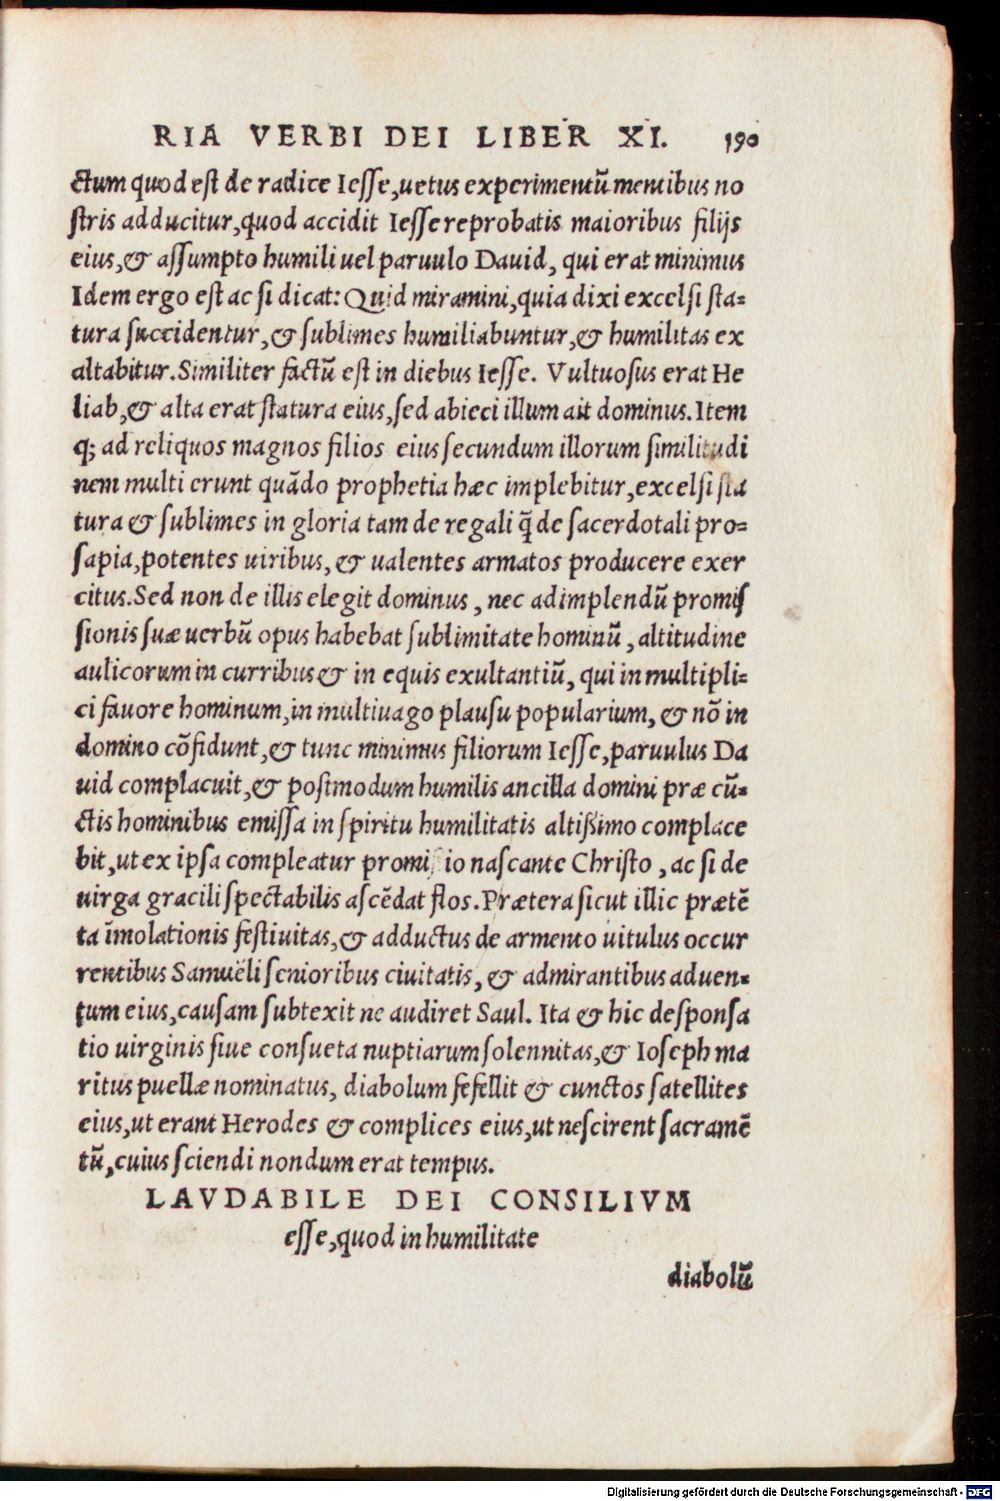 RIA VERBI DEI LIBER XI. 190
ctum quod est de radice Iesse, uetus experimentũ mentibus no
stris adducitur, quod accidit Iesse reprobatis maioribus filijs
eius, & assumpto humili uel paruulo Dauid, qui erat minimus
Idem ergo est ac si dicat: Quid miramini, quia dixi excelsi sta-
tura succidentur, & sublimes humiliabuntur, & humilitas ex
altabitur. Similiter factũ est in diebus Iesse. Vultuosus erat He
liab, & alta erat statura eius, sed abieci illum ait dominus. Item
q; ad reliquos magnos filios eius secundum illorum similitudi
nem multi erunt quãdo prophetia hæc implebitur, excelsi sta
tura & sublimes in gloria tam de regali q̃ de sacerdotali pro-
sapia, potentes uiribus, & ualentes armatos producere exer
citus. Sed non de illis elegit dominus, nec adimplendũ promis
sionis suæ uerbũ opus habebat sublimitate hominũ, altitudine
aulicorum in curribus & in equis exultantiũ, qui in multipli-
ci fauore hominum, in multiuago plausu popularium, & nõ in
domino cõfidunt, & tunc minimus filiorum Iesse, paruulus Da
uid complacuit, & postmodum humilis ancilla domini præ cũ-
ctis hominibus emissa in spiritu humilitatis altißimo complace
bit, ut ex ipsa compleatur promissio nascante Christo, ac si de
uirga gracili spectabilis ascẽdat flos. Prætera sicut illic prætẽ
ta ĩmolationis festiuitas, & adductus de armento uitulus occur
rentibus Samuëli senioribus ciuitatis, & admirantibus aduen-
tum eius, causam subtexit ne audiret Saul. Ita & hic desponsa
tio uirginis siue consueta nuptiarum solennitas, & Ioseph ma
ritus puellæ nominatus, diabolum fefellit & cunctos satellites
eius, ut erant Herodes & complices eius, ut nescirent sacramẽ
tũ, cuius sciendi nondum erat tempus.
LAVDABILE DEI CONSILIVM
esse, quod in humilitate
diabolũ
Digitalisierung gefördert durch die Deutsche Forschungsgemeinschaft - DFG